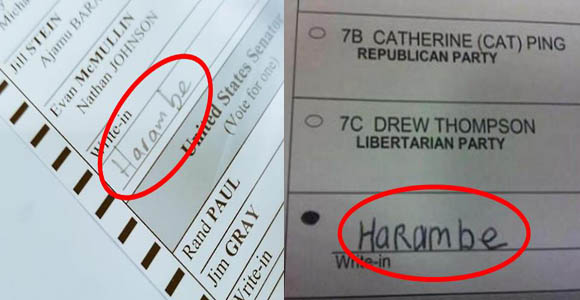 Jill STEIN
Ajamu BARA
Evan McMULLIN
Nathan JOHNSON
Harambe
Write-in
United States Senator
(Vote for one)
Rand PAUL
Jim GRAY
Write-in
7B CATHERINE (CAT) PING
REPUBLICAN PARTY
7C DREW THOMPSON
LIBERTARIAN PARTY
HaRambe
Write-in